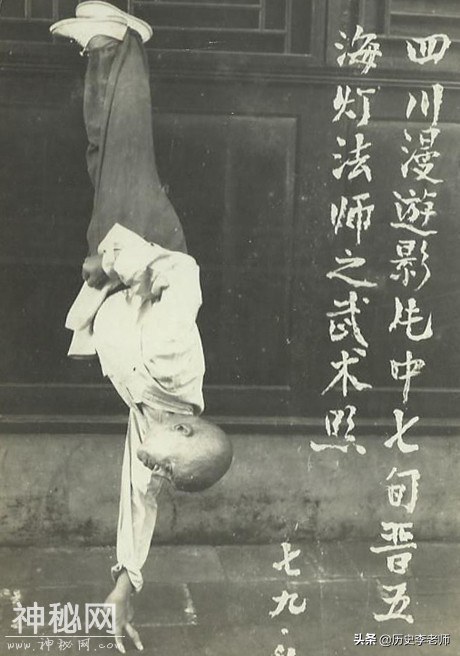 四川漫遊影片中七旬晋五
海灯法师之武术照
七九.
神秘网
www.神秘网.com
头条 @历史李老师